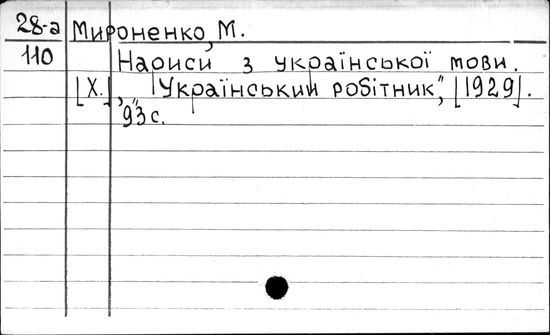 28-а Мироненко, М.
110 Нариси з української мови.
[Х.], „Український робітник", [1929].
93 с.